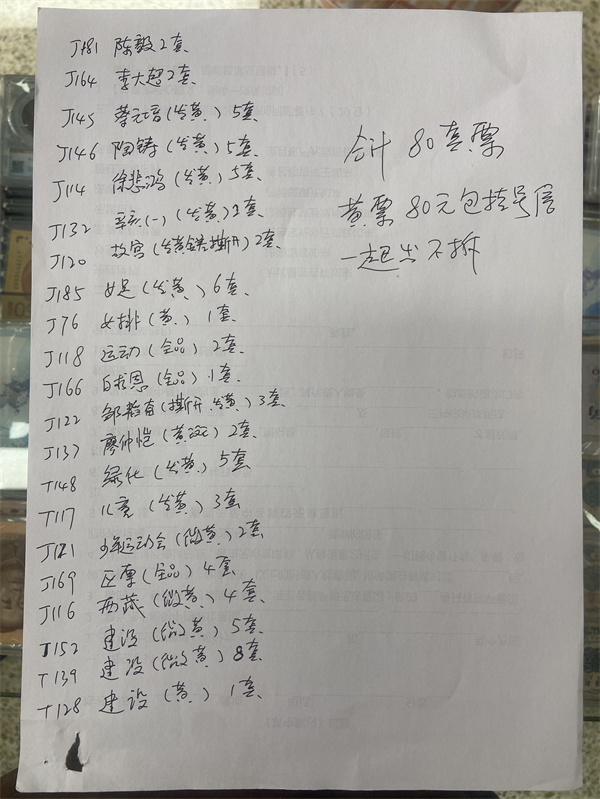 J181 陈毅 2套
J164 李大超 2套
J145 蔡元培(发黄) 5套
J146 陶铸(发黄) 5套
J114 徐悲鸿(发黄) 5套
J132 辛亥(一)(发黄) 2套
J120 故宫(发黄锈撕开) 2套
J185 女足(发黄) 6套
J76 女排(黄) 1套
J118 运动(全品) 2套
J166 白求恩(全品) 1套
J122 邹韬奋(撕开,发黄) 3套
J137 廖仲恺(黄斑) 2套
T148 绿化(发黄) 5套
T117 儿童(发黄) 3套
J121 少年运动会(微黄) 2套
J169 区票(全品) 4套
J116 西藏(微黄) 4套
T152 建设(微黄) 5套
T139 建设(微黄) 8套
T128 建设(黄) 1套
合计 80套票
黄票 80元包挂号信
一起出不拆